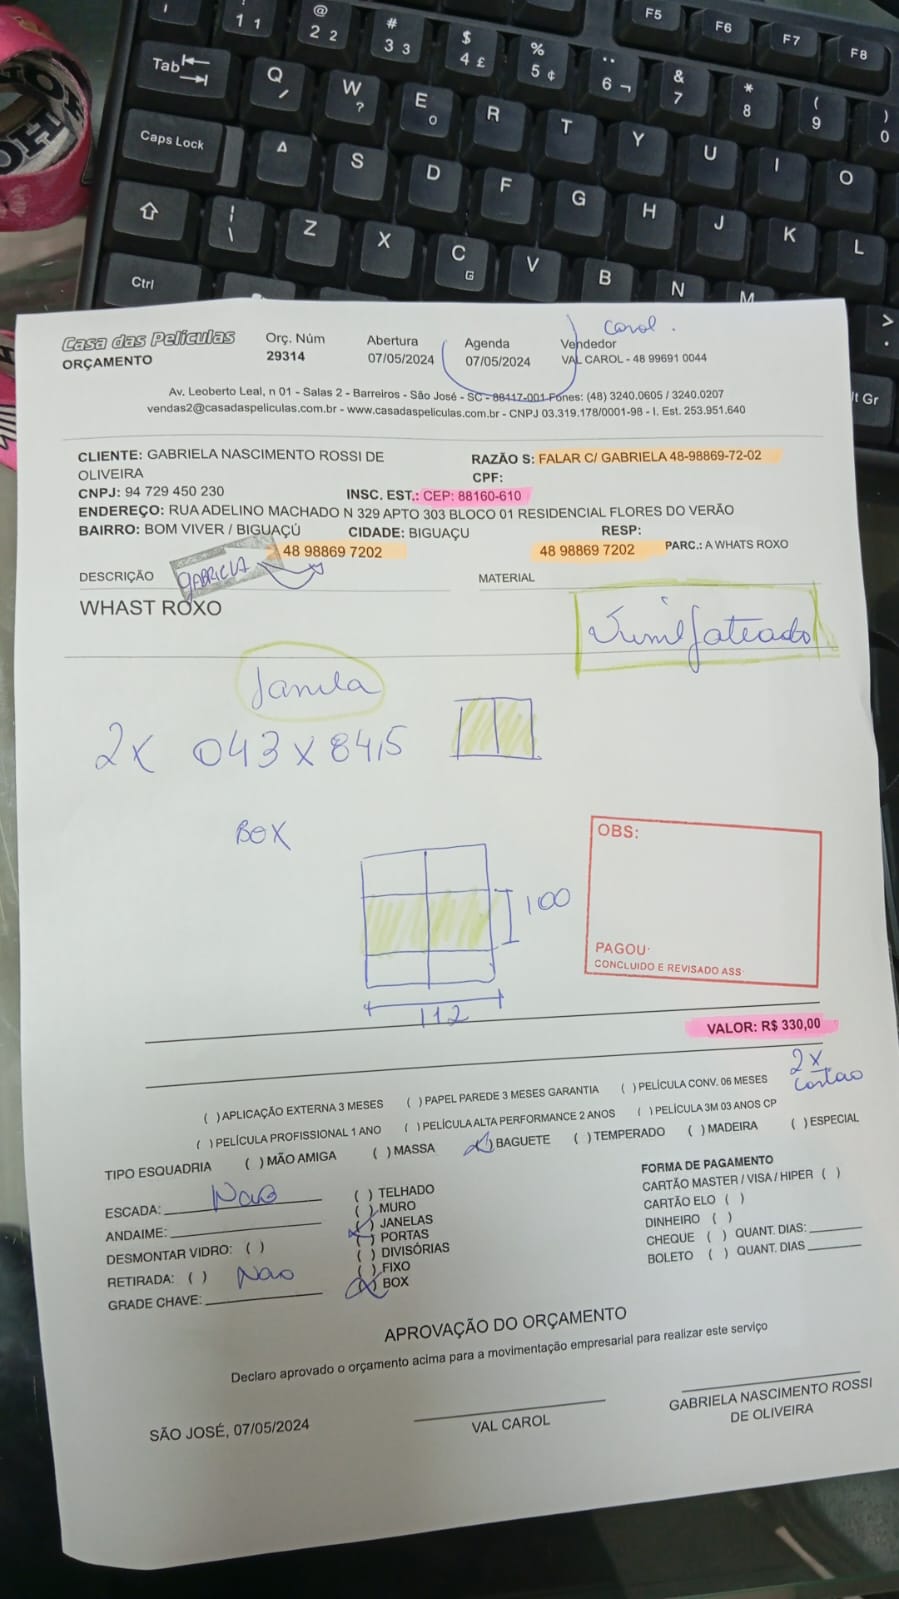 F5 F6 F7 F8
1 1
@ 2 2
# 3 3
$ 4 £
% 5 ¢
¨ 6 ¬
& 7
* 8
( 9
) 0
Tab Q / W ? E ° R T Y U I O
Caps Lock A S D F G H J K L
| \ Z X C ₢ V B N M > .
Ctrl
lt Gr
Carol.
Casa das Películas
ORÇAMENTO
Orç. Núm
29314
Abertura
07/05/2024
Agenda
07/05/2024
Vendedor
VAL CAROL - 48 99691 0044
Av. Leoberto Leal, n 01 - Salas 2 - Barreiros - São José - SC - 88117-001 Fones: (48) 3240.0605 / 3240.0207
vendas2@casadaspeliculas.com.br - www.casadaspeliculas.com.br - CNPJ 03.319.178/0001-98 - I. Est. 253.951.640
CLIENTE: GABRIELA NASCIMENTO ROSSI DE
OLIVEIRA
RAZÃO S: FALAR C/ GABRIELA 48-98869-72-02
CPF:
CNPJ: 94 729 450 230
INSC. EST.: CEP: 88160-610
ENDEREÇO: RUA ADELINO MACHADO N 329 APTO 303 BLOCO 01 RESIDENCIAL FLORES DO VERÃO
BAIRRO: BOM VIVER / BIGUAÇÚ CIDADE: BIGUAÇU RESP:
48 98869 7202 48 98869 7202 PARC.: A WHATS ROXO
DESCRIÇÃO GABRIELA MATERIAL
WHAST ROXO
Jumil Jateado
Janela
2x 043 x 84,5
BOX
100
112
OBS:
PAGOU:
CONCLUIDO E REVISADO ASS:
VALOR: R$ 330,00
2x
Cartao
( ) APLICAÇÃO EXTERNA 3 MESES ( ) PAPEL PAREDE 3 MESES GARANTIA ( ) PELÍCULA CONV. 06 MESES
( ) PELÍCULA PROFISSIONAL 1 ANO ( ) PELÍCULA ALTA PERFORMANCE 2 ANOS ( ) PELÍCULA 3M 03 ANOS CP
TIPO ESQUADRIA ( ) MÃO AMIGA ( ) MASSA (X) BAGUETE ( ) TEMPERADO ( ) MADEIRA ( ) ESPECIAL
ESCADA: Nao
ANDAIME:
DESMONTAR VIDRO: ( )
RETIRADA: ( ) Nao
GRADE CHAVE:
( ) TELHADO
( ) MURO
(X) JANELAS
( ) PORTAS
( ) DIVISÓRIAS
( ) FIXO
(X) BOX
FORMA DE PAGAMENTO
CARTÃO MASTER / VISA / HIPER ( )
CARTÃO ELO ( )
DINHEIRO ( )
CHEQUE ( ) QUANT. DIAS:
BOLETO ( ) QUANT. DIAS
APROVAÇÃO DO ORÇAMENTO
Declaro aprovado o orçamento acima para a movimentação empresarial para realizar este serviço
SÃO JOSÉ, 07/05/2024
VAL CAROL
GABRIELA NASCIMENTO ROSSI
DE OLIVEIRA